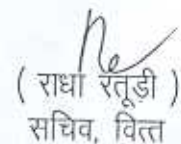 ( राधा रतूड़ी )
सचिव, वित्त